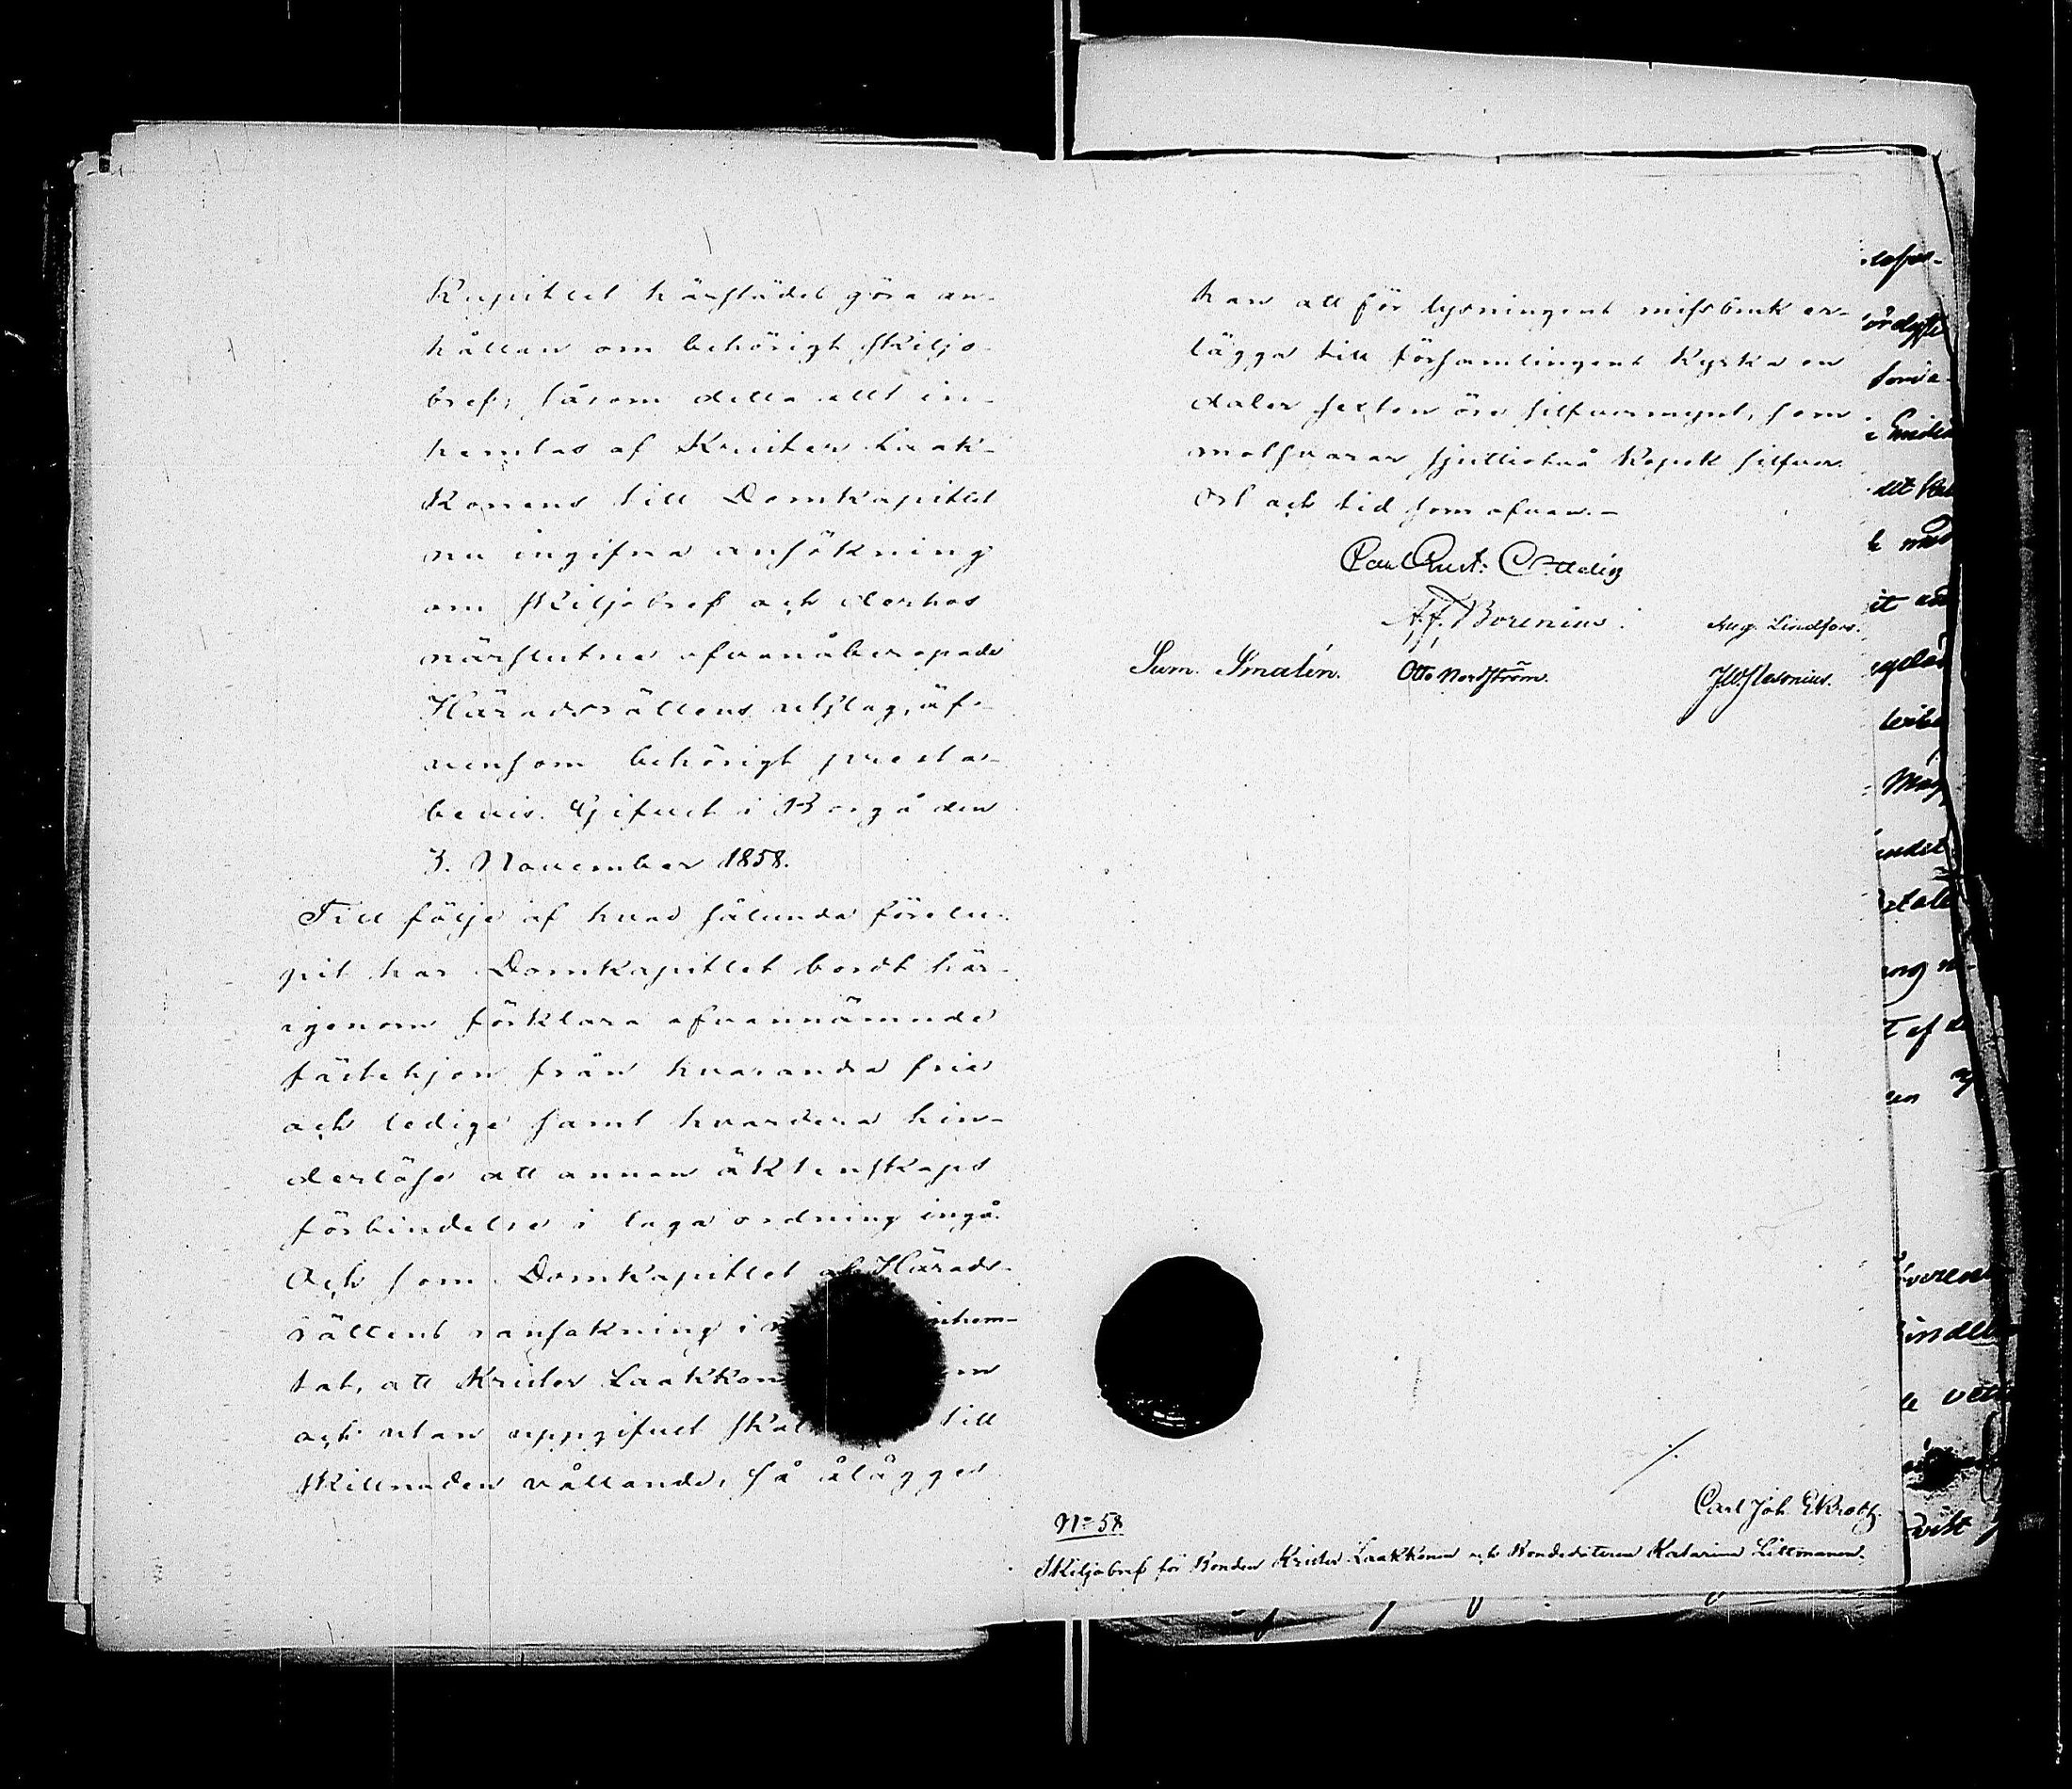 Kapitlet härstädes göra an-
hållan om behörigt skiljo-
bref; såsom detta allt in-
hemtas af Krister Laak-
konens till Domkapitlet
nu ingifna ansökning
om skiljobref och derhos
närslutne ofvanåberopade
Häradsrättens utslag, äf-
vensom behörigt presta-
bevis. Gifvet i Borgå den
3. November 1858.
Till följe af hvad sålunda förelu-
pit har Domkapitlet bordt här-
igenom förklara ofvannämnde
fästehjon från hvarandra frie
och ledige samt hvardera hin-
derlöse att annan äktenskaps
förbindelse i laga ordning ingå.
Och som Domkapitlet af Härads-
rättens ransakning i inhem-
tat, att Krister Laakkon
och utan uppgifvet skäl till
skillnaden vållande, så ålägges
han att för lysningens missbruk er-
lägga till församlingens Kyrka en
daler sexton öre silfvermynt, som
motsvarar sjuttiotvå Kopek silfver.
Ort och tid som ofvan.-
A. F. Borenius.
Aug. Lindfors.
Sam. Smalén.
Otto Nordström.
Carl Joh. Ekroth.
No 58
Skiljobref för Bonden Krister Laakkonen och Bondedottren Katarina Littmanen.